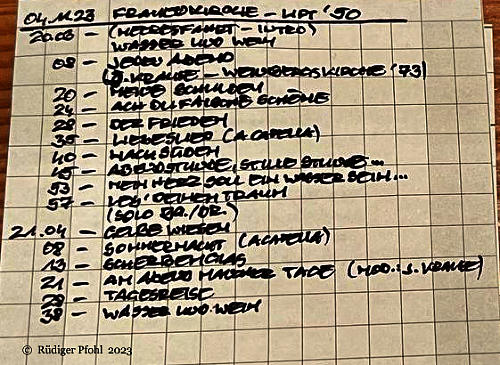 04.11.23 FRANZ KIRCHE - LIFT '50
20.03 - (MEERESFAHRT - INTRO)
WASSER UND WEIN
08 - JEDEN ABEND
KRAUSE - WEINBERGSKIRCHE '73)
20 - MEINE SCHULDEN
24 - ACH DU FALSCHE SCHÖNE
28 - DER FRIEDEN
35 - LIEBESLIED (A CAPELLA)
40 - NACH SÜDEN
45 - ABENDSTUNDE, STILLE STUNDE...
53 - MEIN HERZ SOLL EIN WASSER SEIN...
57 - DEINEN TRAUM
(SOLO
21.04 - GELBE WIESEN
08 - SOMMERNACHT (ACAPELLA)
13 - SCHERBENGLAS
21 - AM ABEND MANCHER TAGE (MOD.: S. KRAUSE)
29 - TAGESREISE
38 - WASSER UND WEIN
© Rüdiger Pfohl 2023